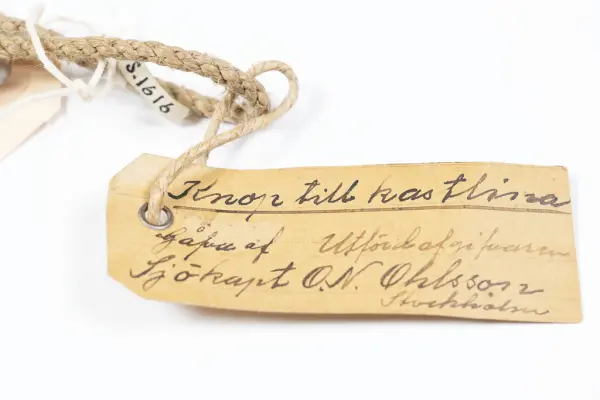 S.1616
Knop till kastlina
Gåfva af Utförd af gifvaren
Sjökapt O.N. Ohlsson
Stockholm